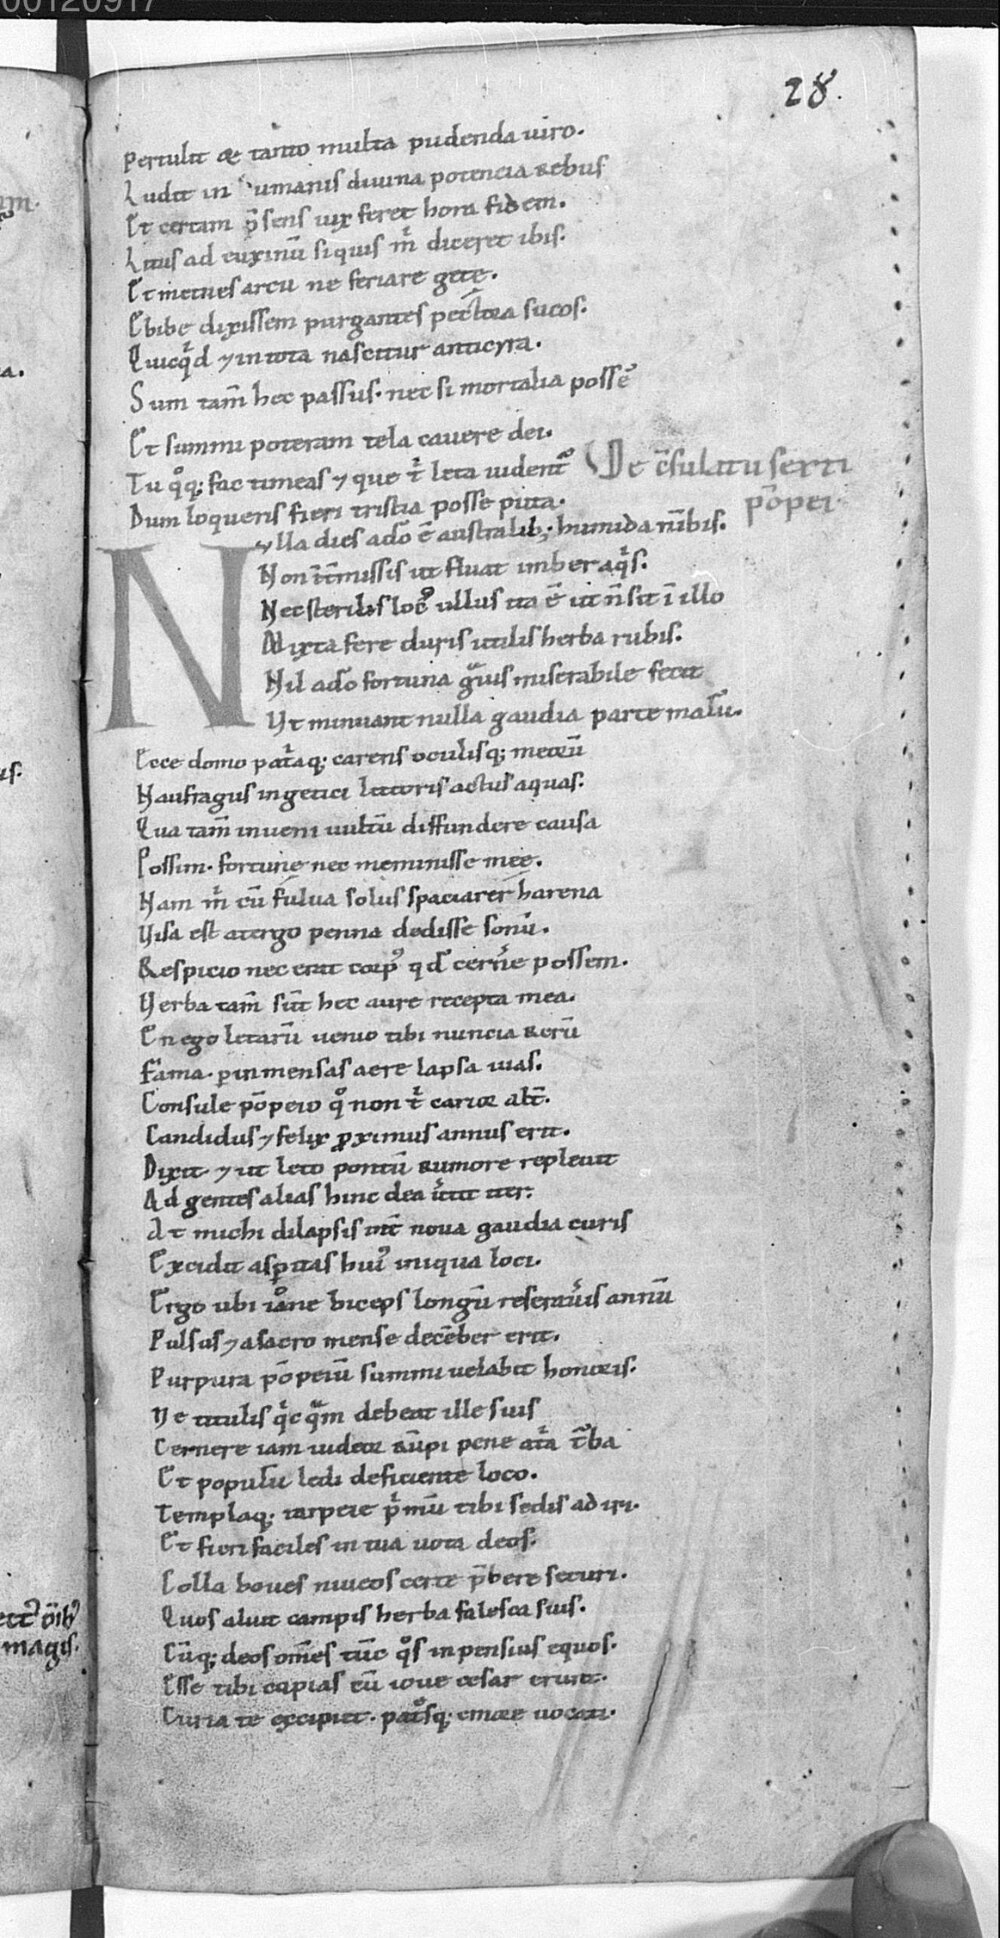 00120917
28.
Pertulit & tanto multa pudenda uiro.
Ludit in humanis diuina potencia rebus
Et certam p̄sens uix feret hora fidem.
Litus ad euxinū siquis m̍ diceret ibis.
Et metues arcu ne feriare getę.
Ebibe dixissem purgantes pectora sucos.
Quicq̍d ⁊ in tota nascitur anticyra.
Sum tam̄ hec passus. nec si mortalia possē
Et summi poteram tela cauere dei.
Tu q°q; fac timeas ⁊ que t̍ leta uident᷑
De c̄sulatu sexti
pōpei.
Dum loqueris fieri tristia posse puta.
Nulla dies adō ē australib; humida nībis.
Non īt̄missis ut fluat imber aq̍s.
Nec sterilis locꝰ ullus ita ē ut n̄ sit ī illo
Mixta fere duris utilis herba rubis.
Nil adō fortuna gͣuis miserabile fecit
Vt minuant nulla gaudia parte malū.
Ecce domo pat̍aq; carens oculisq; meorū
Naufragus in getici littoris actus aquas.
Qua tam̄ inueni uultū diffundere causa
Possim. fortunę nec meminisse meę.
Nam m̍ cū fulua solus spaciarer harena
Visa est a tergo penna dedisse sonū.
Respicio nec erat corpꝰ qd̄ cern̄e possem.
Verba tam̄ sūt hec aure recepta mea.
En ego letarū uenio tibi nuncia rerū
Fama. p inmensas aere lapsa uias.
Consule pōpeio q° non t̍ carior alt̄.
Candidus ⁊ felix ꝓximus annus erit.
Dixit. ⁊ ut leto pontū rumore repleuit
Ad gentes alias hinc dea u̍tit iter.
At michi dilapsis int̄ noua gaudia curis
Excidit asp̱itas huiꝰ iniqua loci.
Ergo ubi iane biceps longū reseraūis annū
Pulsus ⁊ a sacro mense decēber erit.
Purpura pōpeiū summi uelabit honoris.
Ne titulis q̍cqͣm debeat ille suis
Cernere iam uideor rūpi pene at̍a t᷑ba
Et populū ledi deficiente loco.
Templaq; tarpeie p̍mū tibi sedis adiri.
Et fieri faciles in tua uota deos.
Colla boues niueos certe p̄bere securi.
Quos aluit campis herba falisca suis.
Cūq; deos om̄es tūc q°s inpensius equos.
Esse tibi cupias cū ioue cesar erunt.
Curia te excipiet. pat°sq; e more uocati.